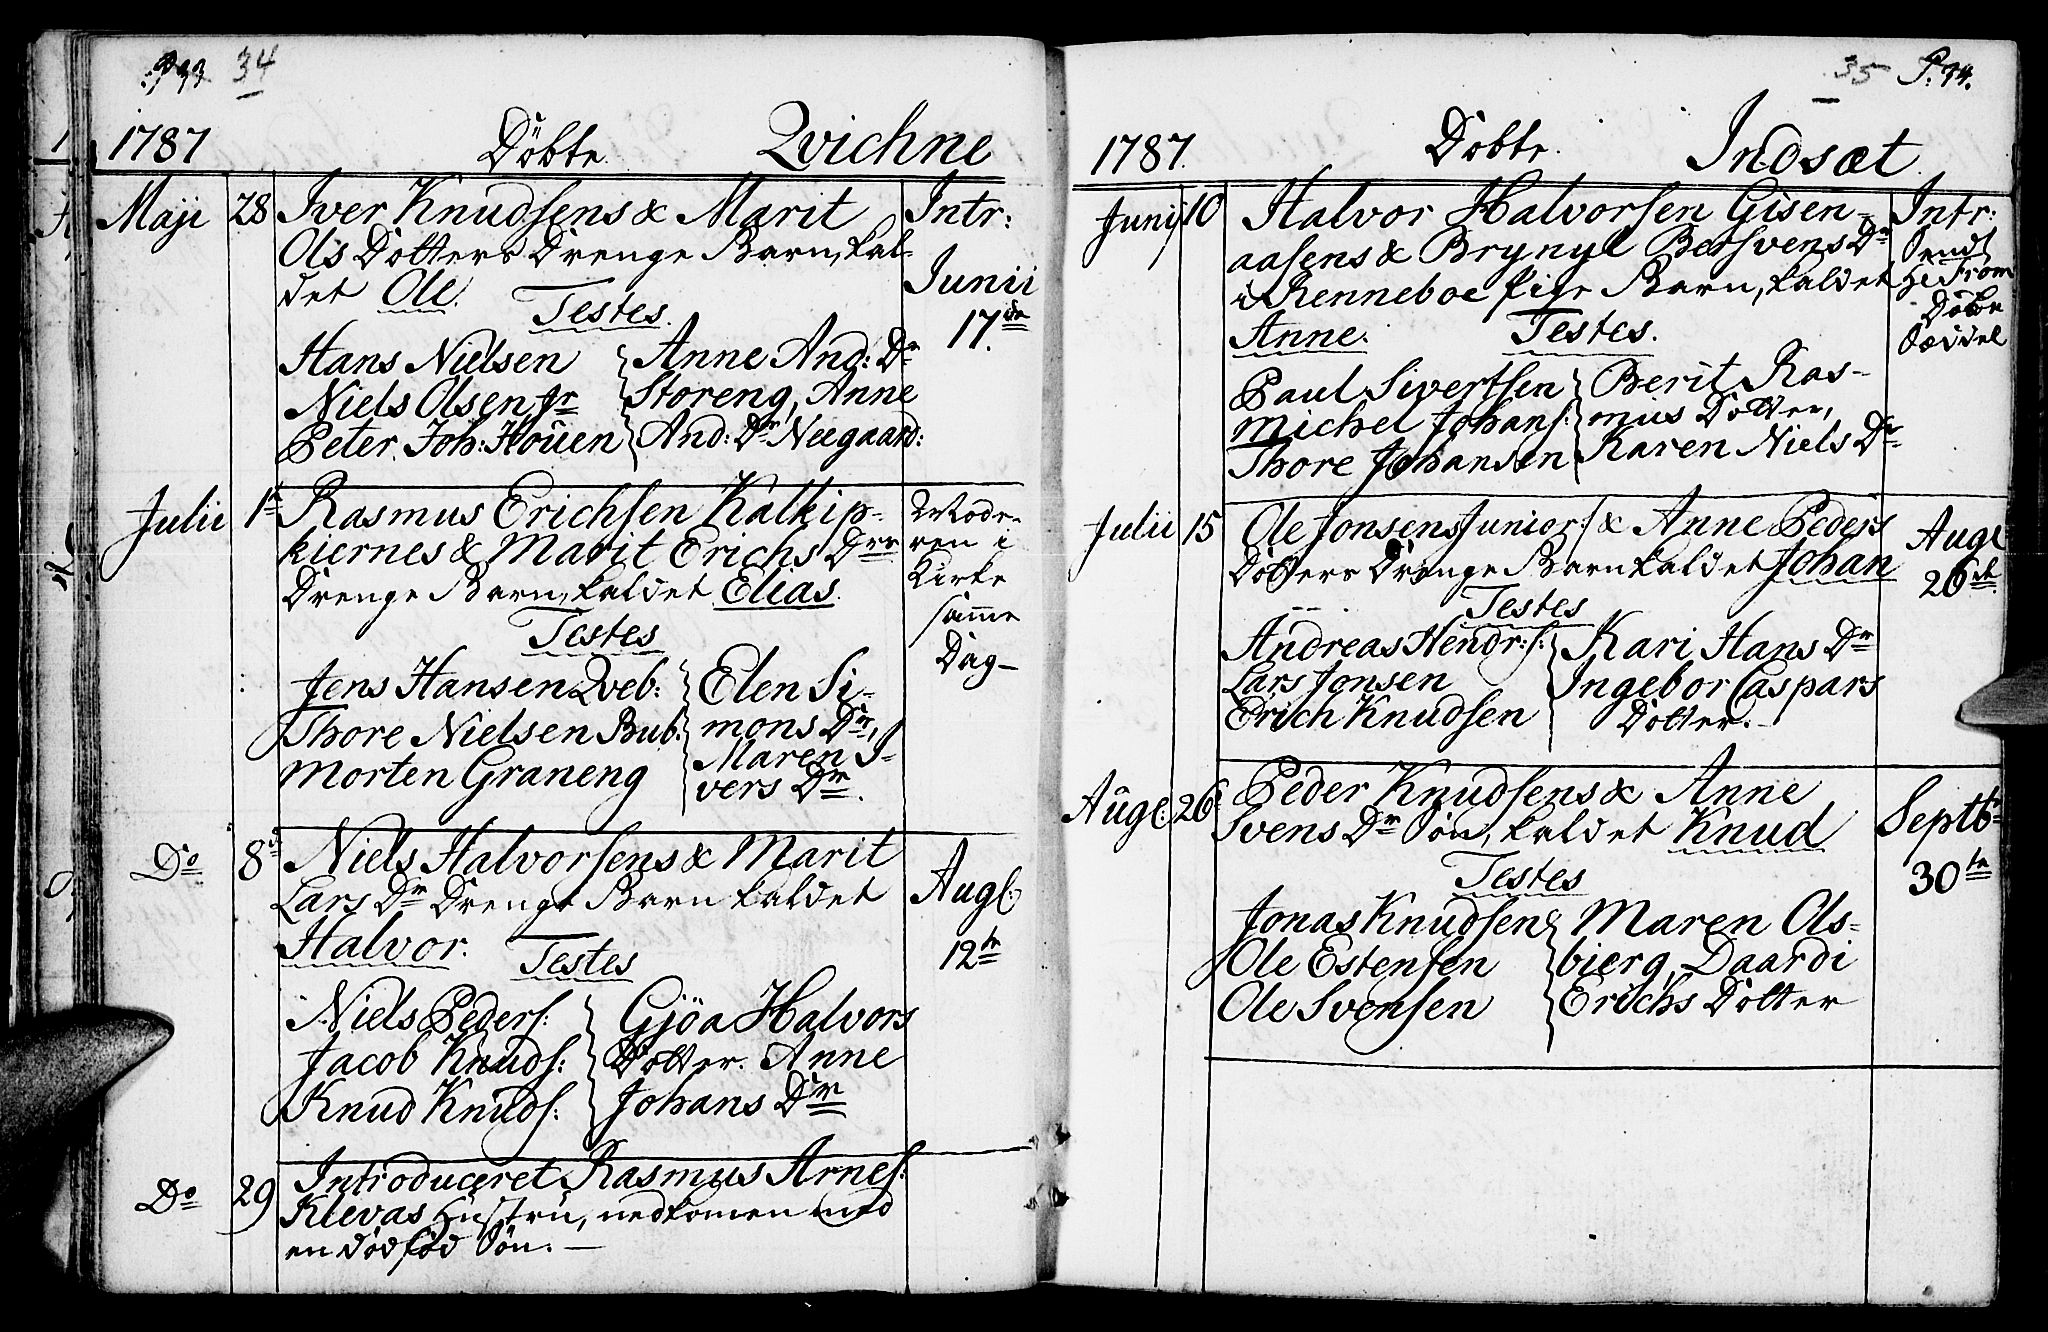 34
1787 Döbte Qvichne
Maji 28 Iver Knudsens & Marit
Ols Dotters Drenge Barn, kal-
det Ole.
Testes.
Hans Nielsen
Niels Olsen Jr
Peter Joh: Houen
Anne And: Dr
Storeng, Anne
And: Dr Neegaard:
Intr:
Junii
17de
Julii 1te Rasmus Erichsen Kaltkip-
kiernes & Marit Erichs Drr
Drenge Barn, kaldet Elias.
Testes
Jens Hansen Qveb:
Thore Nielsen Bub.
Morten Graneng
Elen Si-
mons Dr,
Maren I-
vers Dr.
Mode-
ren i
Kirke
samme
Dag-
Do 8de Niels Halvorsens & Marit
Lars Dr Drenge Barn kaldet
Halvor.
Testes
Niels Peders:
Jacob Knuds:
Knud Knuds:
Gjöa Halvors
Dotter. Anne
Johans Dr
Augl:
12te
Do 29 Introduceret Rasmus Arnes:
Klevas Hustru, nedkomen med
en dødfød Søn. —
35 P. 34.
1787. Döbte. Indsæt.
Junij 10 Halvor Halvorsen Gisen-
aasens & Brynyl Bersvens Dr
i Renneboe Pige Barn, kaldet
Anne.
Testes.
Paul Sivertsen
Michel Johans:
Thore Johansen
Berit Ras-
mus Dotter,
Karen Niels Dr
Intr:
Sendt
He From
Døbe
Sæddel
Julii 15 Ole Jonsens Junior: & Anne Peders
Dotters Drenge Barn kaldet Johan
Testes
Andreas Hendr:s:
Lars Jonsen
Erich Knudsen
Kari Hans Dr
Ingebor Caspars
Dotter.
Augl
26de
Augl: 26 Peder Knudsens & Anne
Svens Dr Søn, kaldet Knud
Testes
Jonas Knudsen
Ole Estensen
Ole Svensen
Maren Ols-
bierg, Daardi
Erichs Dotter
Septb
30te